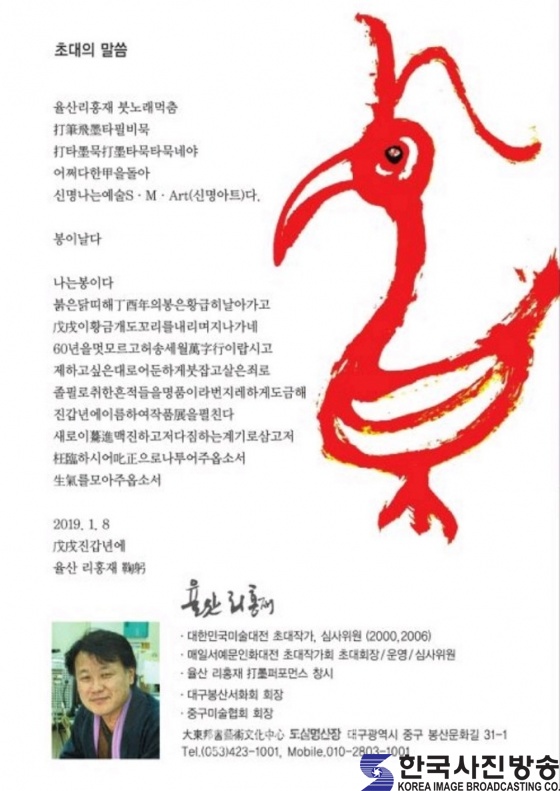 초대의 말씀
율산리홍재 붓노래먹춤
打筆飛墨타필비묵
打타墨묵打墨타묵타묵네야
어쩌다한甲을돌아
신명나는예술S · M · Art(신명아트)다.
봉이날다
나는봉이다
붉은닭띠해丁酉年의봉은황급히날아가고
戊戌이황금개도꼬리를내리며지나가네
60년을멋모르고허송세월萬字行이랍시고
제하고싶은대로어둔하게붓잡고살은죄로
졸필로취한흔적들을명품이라번지레하게도금해
진갑년에이름하여작품展을펼친다
새로이驀進맥진하고저다짐하는계기로삼고저
枉臨하시어叱正으로나투어주옵소서
生氣를모아주옵소서
2019. 1. 8
戊戌진갑년에
율산 리홍재 鞠躬
율산 리홍재
· 대한민국미술대전 초대작가, 심사위원 (2000,2006)
· 매일서예문인화대전 초대작가회 초대회장/운영/심사위원
· 율산 리홍재 打墨퍼포먼스 창시
· 대구봉산서화회 회장
· 중구미술협회 회장
大東邦書藝術文化中心 도심명산장 대구광역시 중구 봉산문화길 31-1
Tel.(053)423-1001, Mobile.010-2803-1001
한국사진방송
KOREA IMAGE BROADCASTING CO